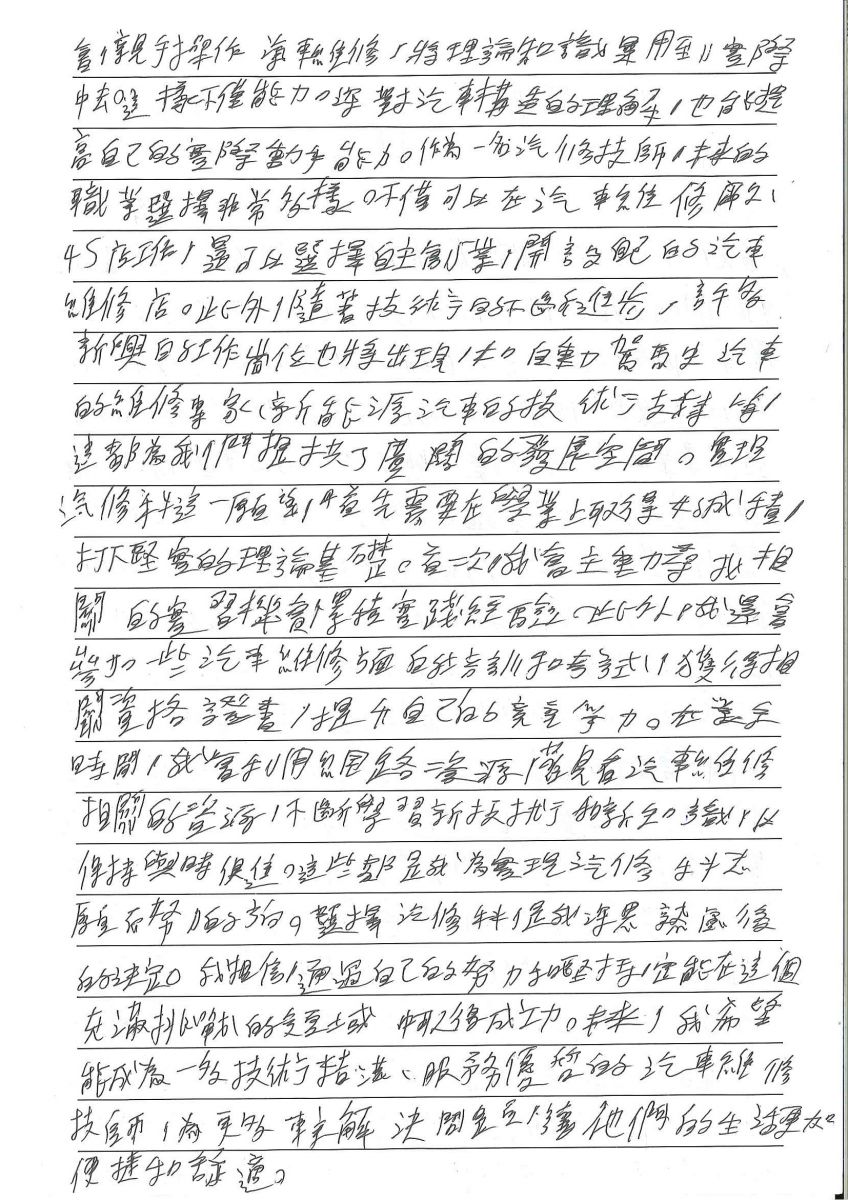 會親手操作汽車維修，將理論知識運用到實際
中去。這樣不僅能加深對汽車構造的理解，也能提
高自己的實際動手能力。作為一名汽修技師，未來的
職業選擇非常多樣。不僅可以在汽車維修廠、
4S店工作，還可以選擇自主創業，開設自己的汽車
維修店。此外，隨著技術的不斷進步，許多
新興的工作崗位也將出現，如自動駕駛汽車
的維修專家、新能源汽車的技術支持等，
這都為我們提供了廣闊的發展空間。實現
汽修科這一願望，首先需要在學業上取得好成績，
打下堅實的理論基礎。其次，我會主動尋找相
關的實習機會，累積實踐經驗。此外，我還會
參加一些汽車維修方面的培訓和考試，獲得相
關資格證書，提升自己的競爭力。在業餘
時間，我會利用網路資源觀看汽車維修
相關的資源，不斷學習新技術和新知識，以
保持與時俱進。這些都是我為實現汽修科志
願而努力的方向。選擇汽修科是我深思熟慮後
的決定。我相信，通過自己的努力和堅持，定能在這個
充滿挑戰的領域中取得成功。未來，我希望
能成為一名技術精湛、服務優質的汽車維修
技師，為更多車主解決問題，讓他們的生活更加
便捷和舒適。